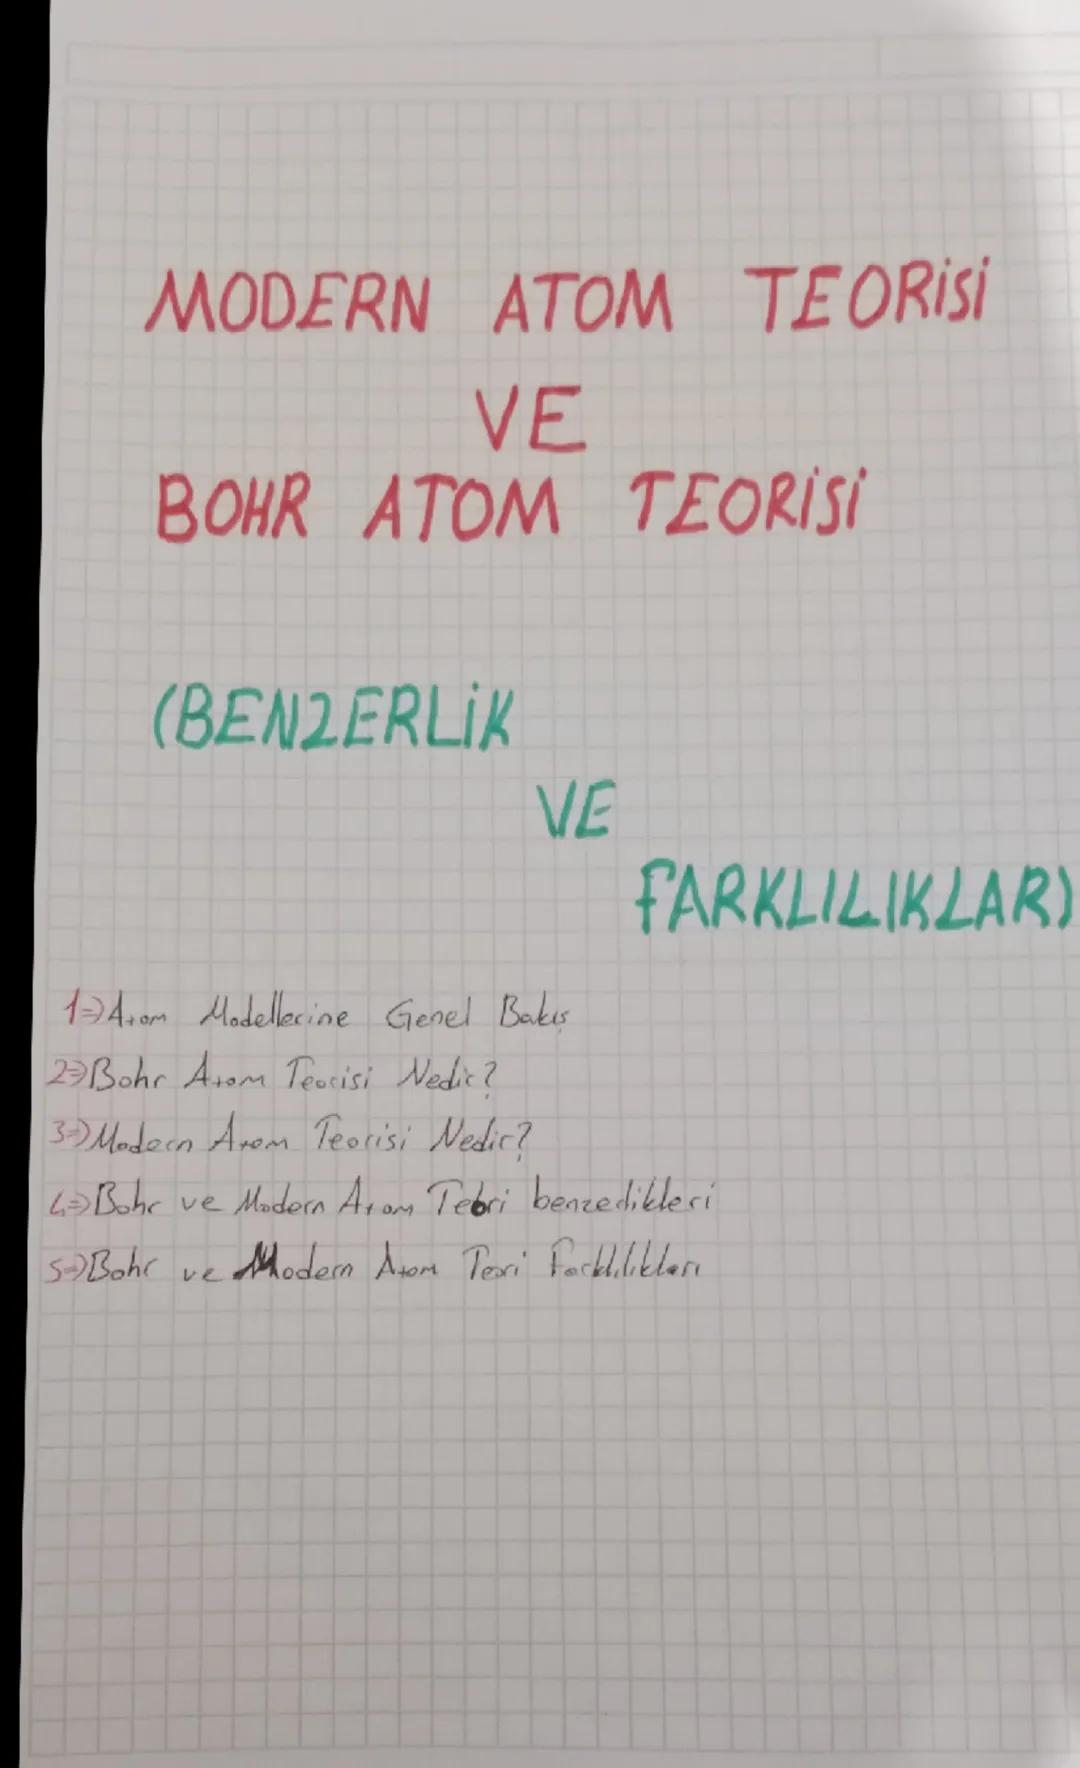 MODERN ATOM TEORİSİ
VE
BOHR ATOM TEORİSİ
(BENZERLİK
VE
FARKLILIKLAR)
1⇒Atom Modellerine Genel Bakış
2⇒Bohr Atom Teorisi Nedir?
3⇒Modern Atom Teorisi Nedir?
4⇒Bohr ve Modern Atom Teori benzerlikleri
5⇒Bohr ve Modern Atom Teori Farklılıkları